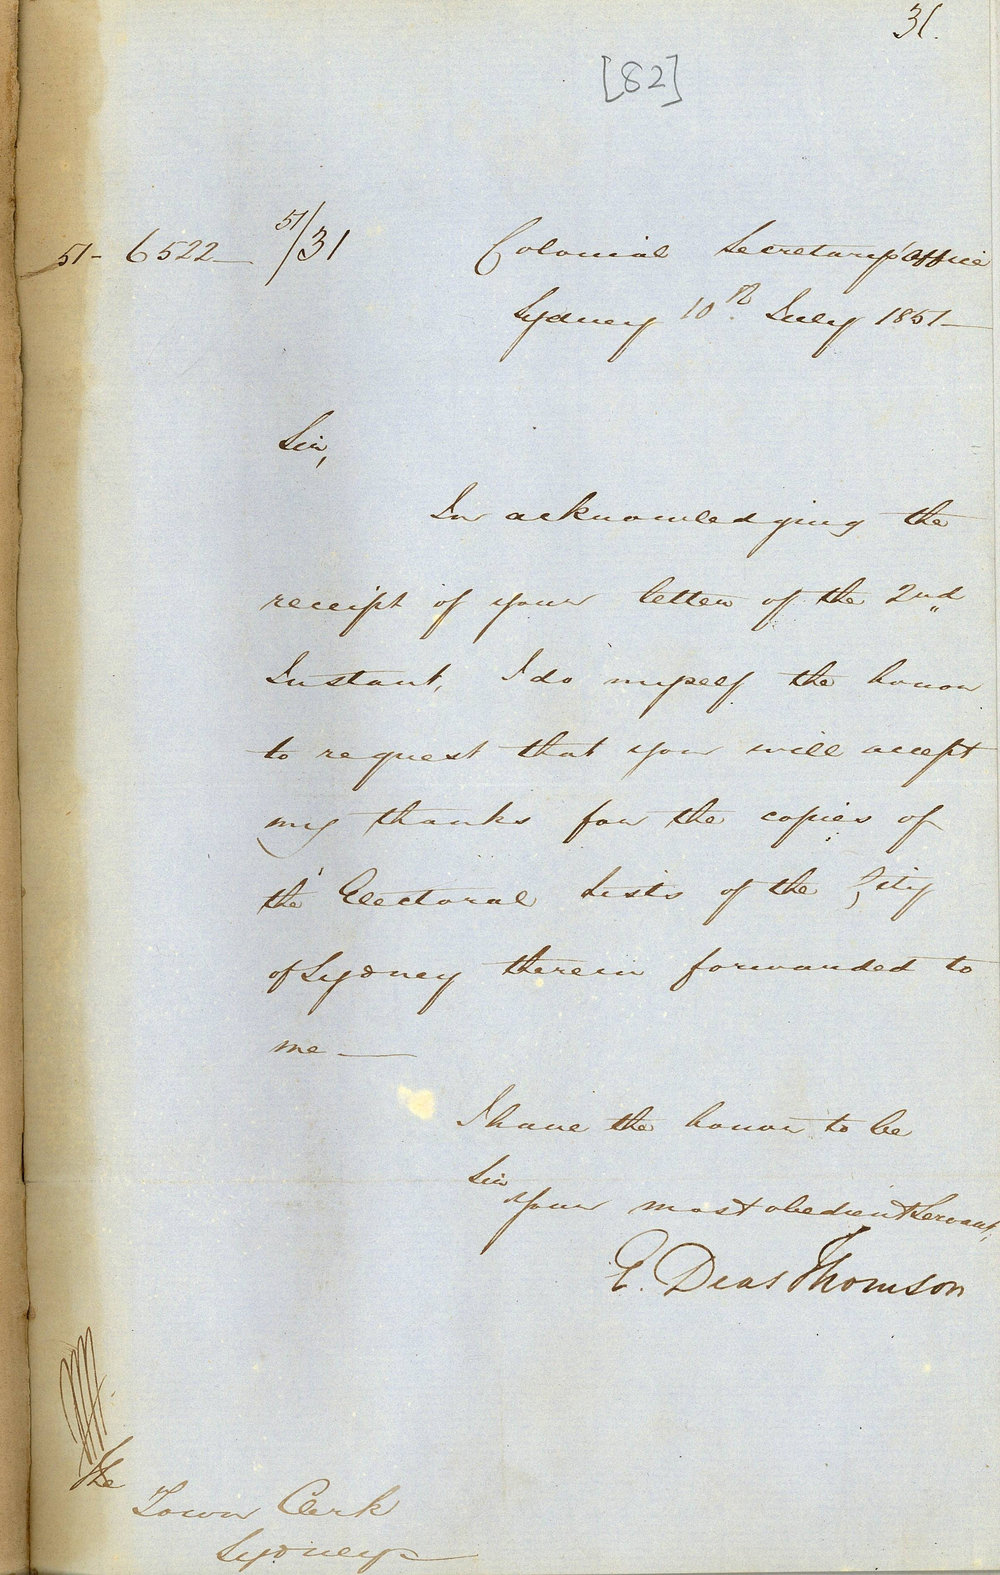 31.
[82]
51-6522 51/31 Colonial Secretary's Office
Sydney 10th July 1851
Sir,
In acknowledging the
receipt of your letter of the 2nd
Instant, I do myself the honor
to request that you will accept
my thanks for the copies of
the Electoral Lists of the City
of Sydney therein forwarded to
me
I have the honor to be
Sir
Your most obedient Servant,
E. Deas Thomson
The
Town Clerk
Sydney